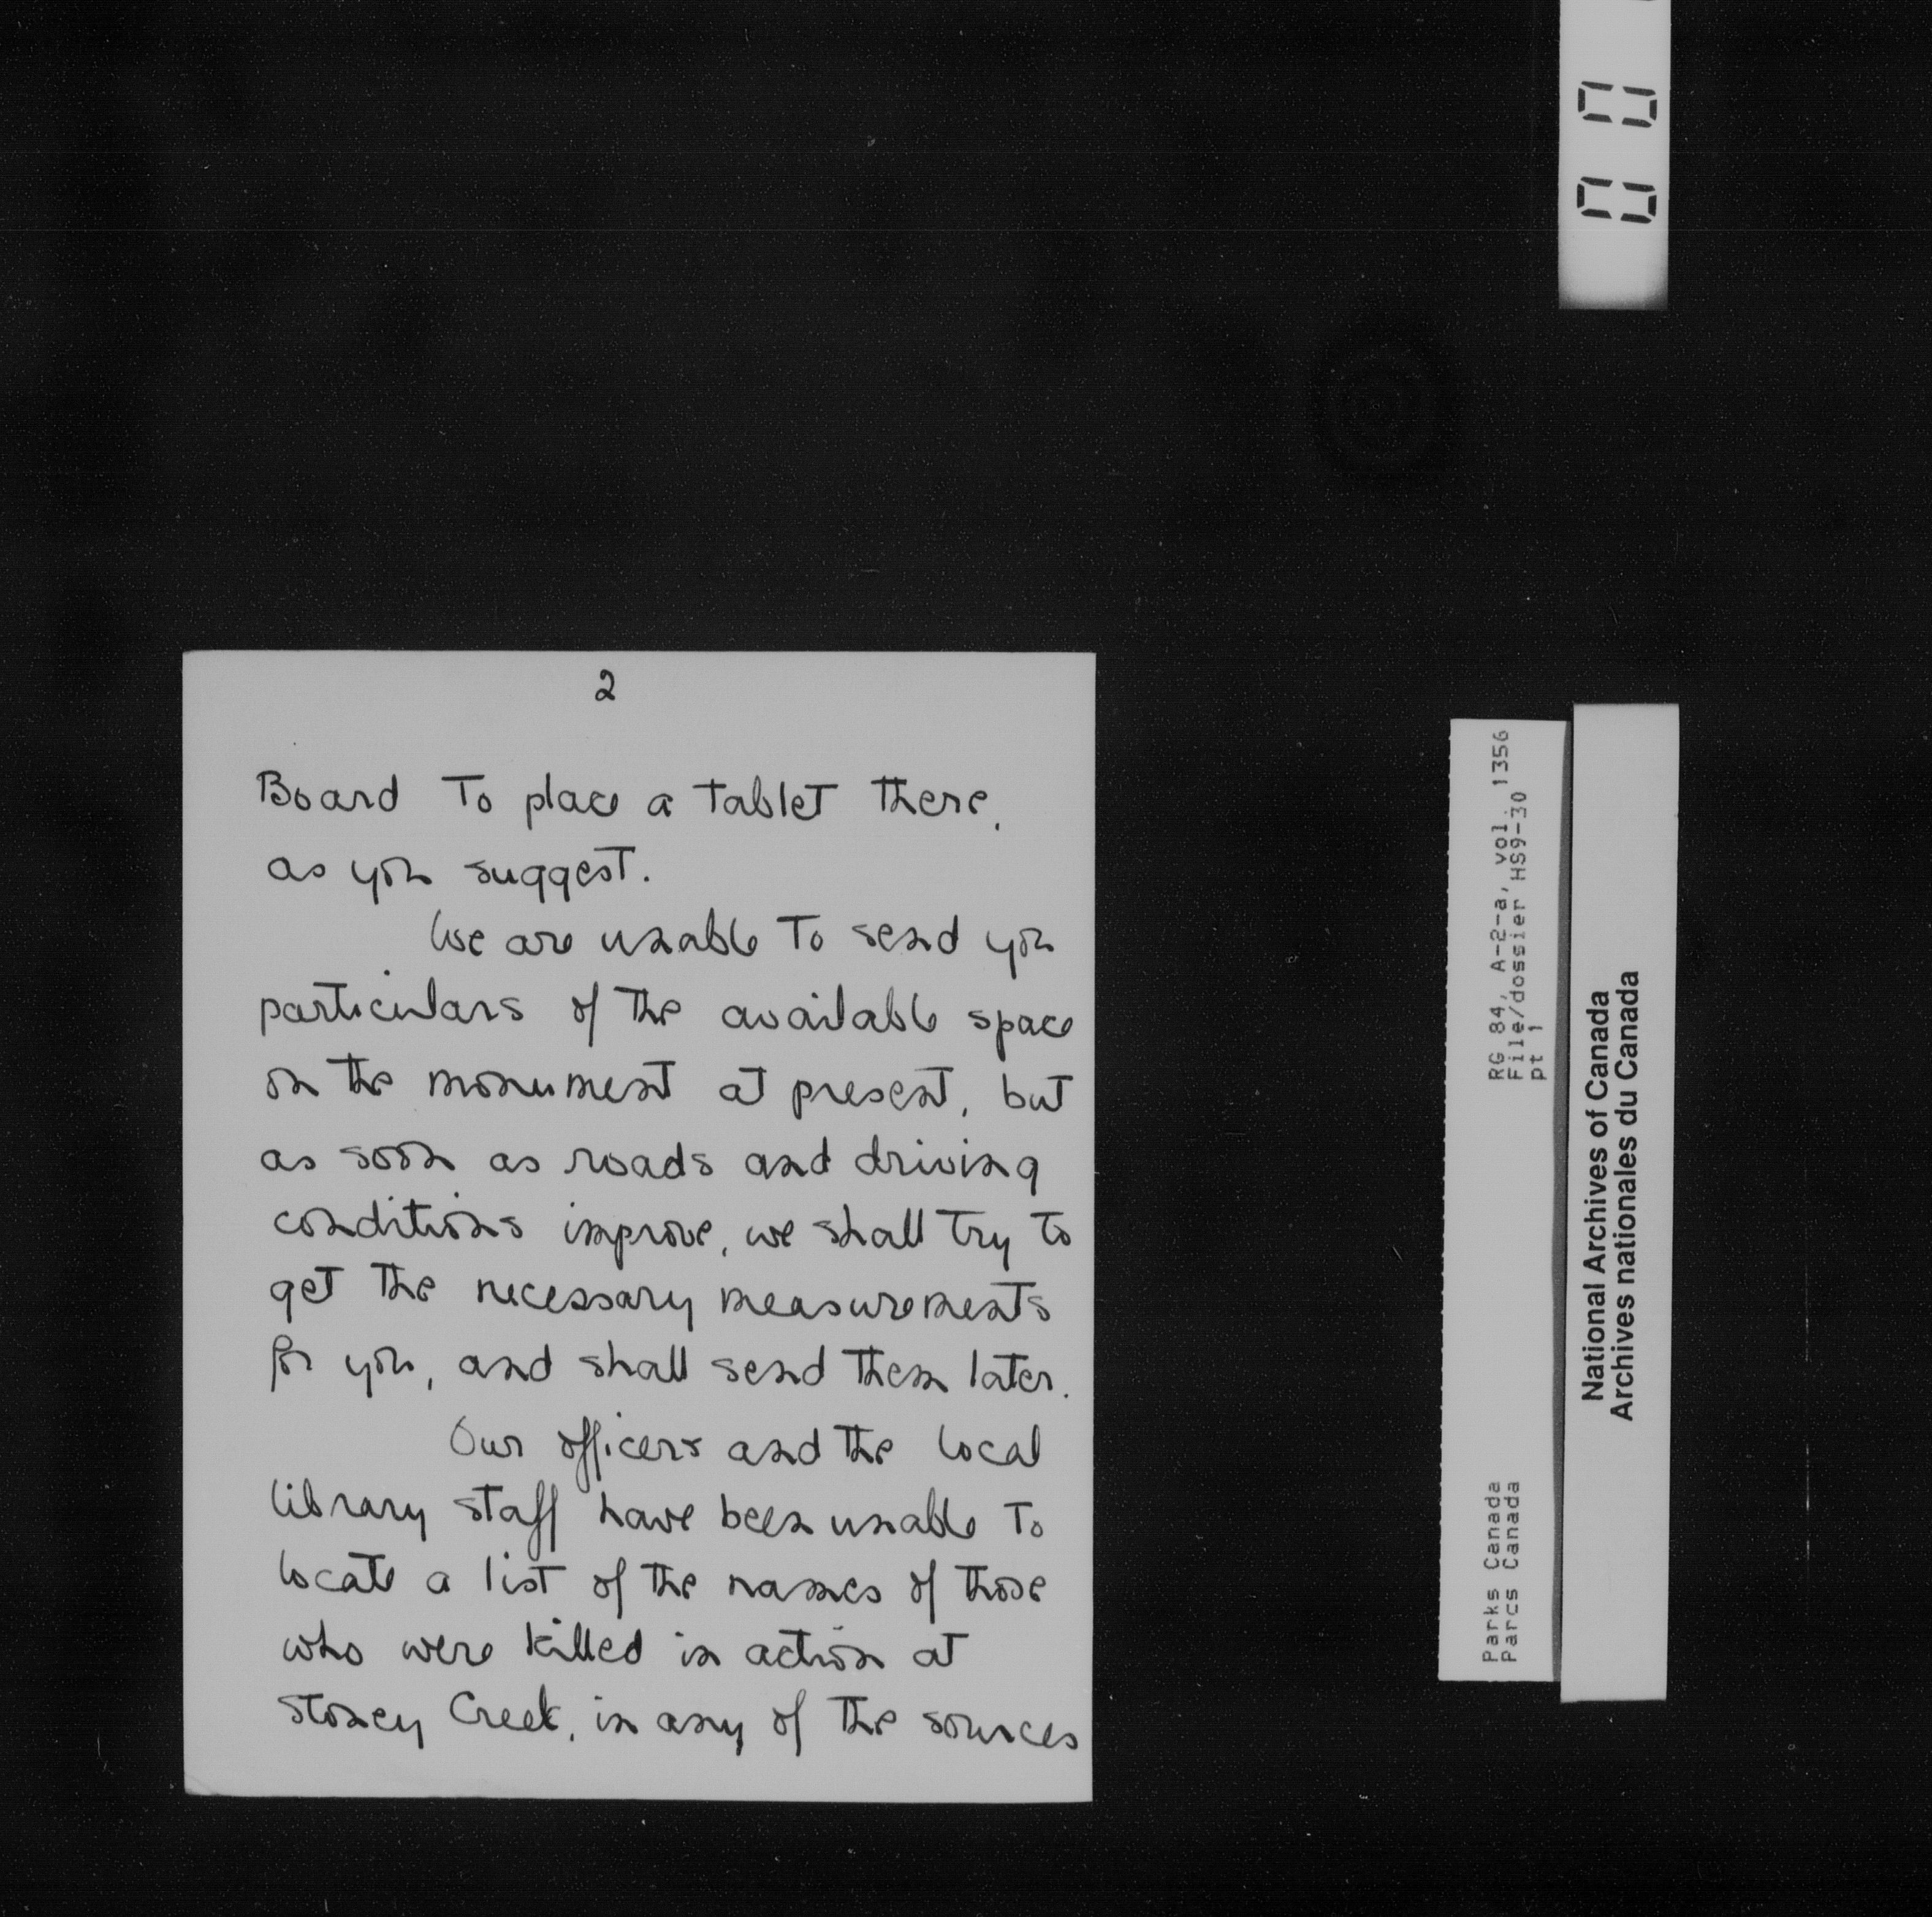 2
Board To place a tablet there,
as you suggest.
We are unable To send you
particulars of the available space
on the monument at present, but
as soon as roads and driving
conditions improve, we shall try to
get the necessary measurements
for you, and shall send them later.
Our officers and the local
library staff have been unable To
locate a list of the names of those
who were killed in action at
Stoney Creek, in any of the sources
00
RG 84, A-2-a, vol. 1356
File/dossier HS9-30
pt 1
Parks Canada
Parcs Canada
National Archives of Canada
Archives nationales du Canada